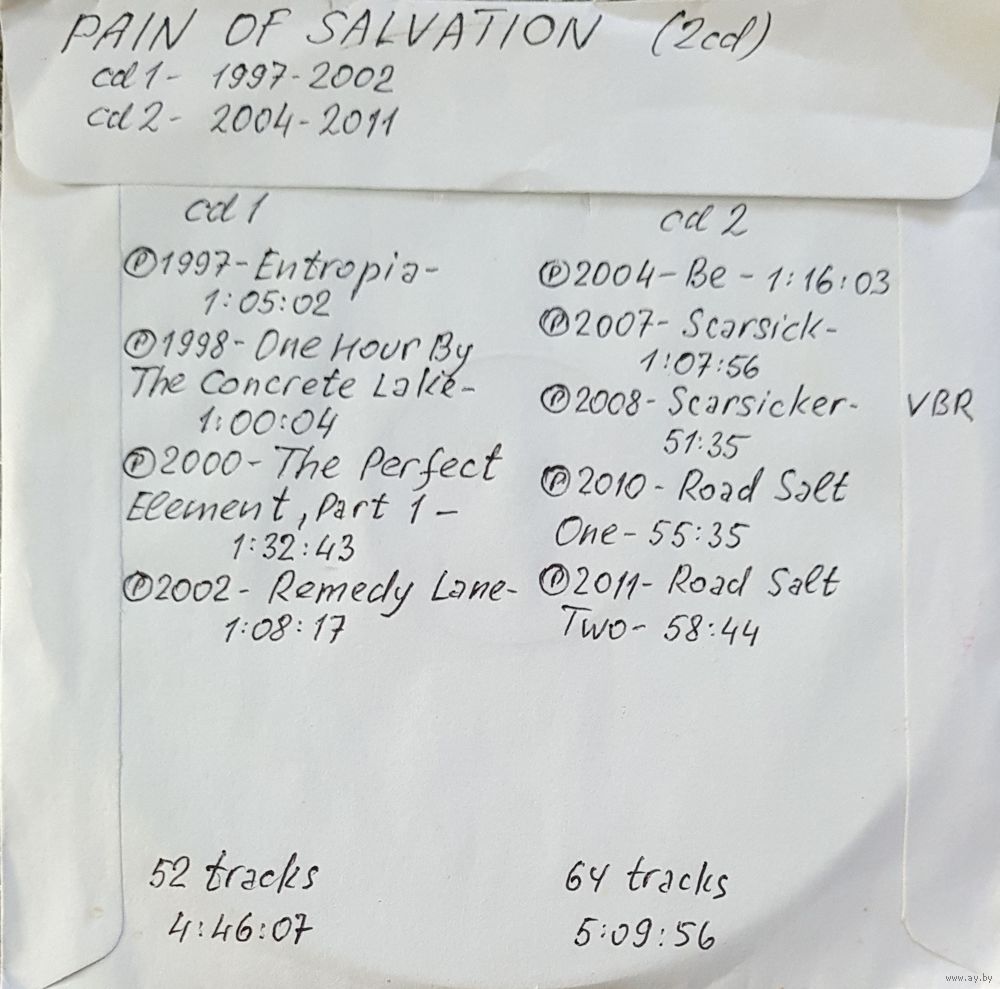 PAIN OF SALVATION (2cd)
cd1- 1997-2002
cd2- 2004-2011
cd1
℗1997-Entropia-
1:05:02
℗1998-One Hour By
The Concrete Lake-
1:00:04
℗2000-The Perfect
Element, Part 1-
1:32:43
℗2002-Remedy Lane-
1:08:17
52 tracks
4:46:07
cd2
℗2004-Be-1:16:03
℗2007-Scarsick-
1:07:56
℗2008-Scarsicker- VBR
51:35
℗2010-Road Salt
One-55:35
℗2011-Road Salt
Two-58:44
64 tracks
5:09:56
www.ay.by